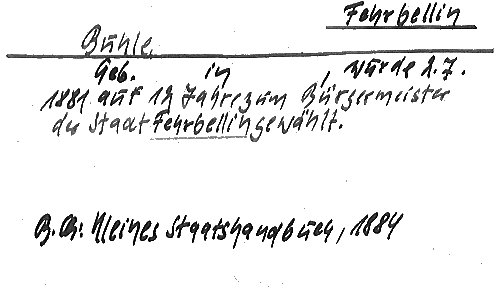 Fehrbellin
Bühle,
Geb. in , wurde 2.7.
1881 auf 12 Jahre zum Bürgermeister
der Stadt Fehrbellin gewählt.
B.B.: Kleines Staatshandbuch, 1884